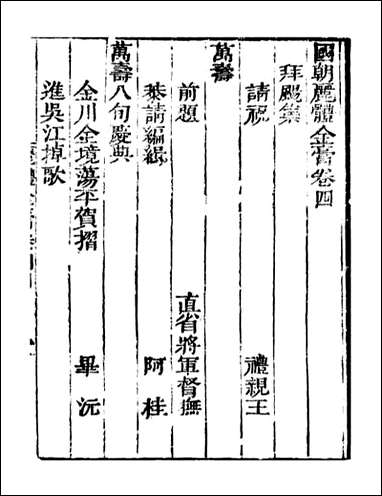 國朝麗體金膏卷四
拜颺集
請祝 禮親王
萬壽
前題 直省將軍督撫
恭請編緝 阿桂
萬壽八旬慶典
金川全境蕩平賀摺 畢沅
進吳江棹歌